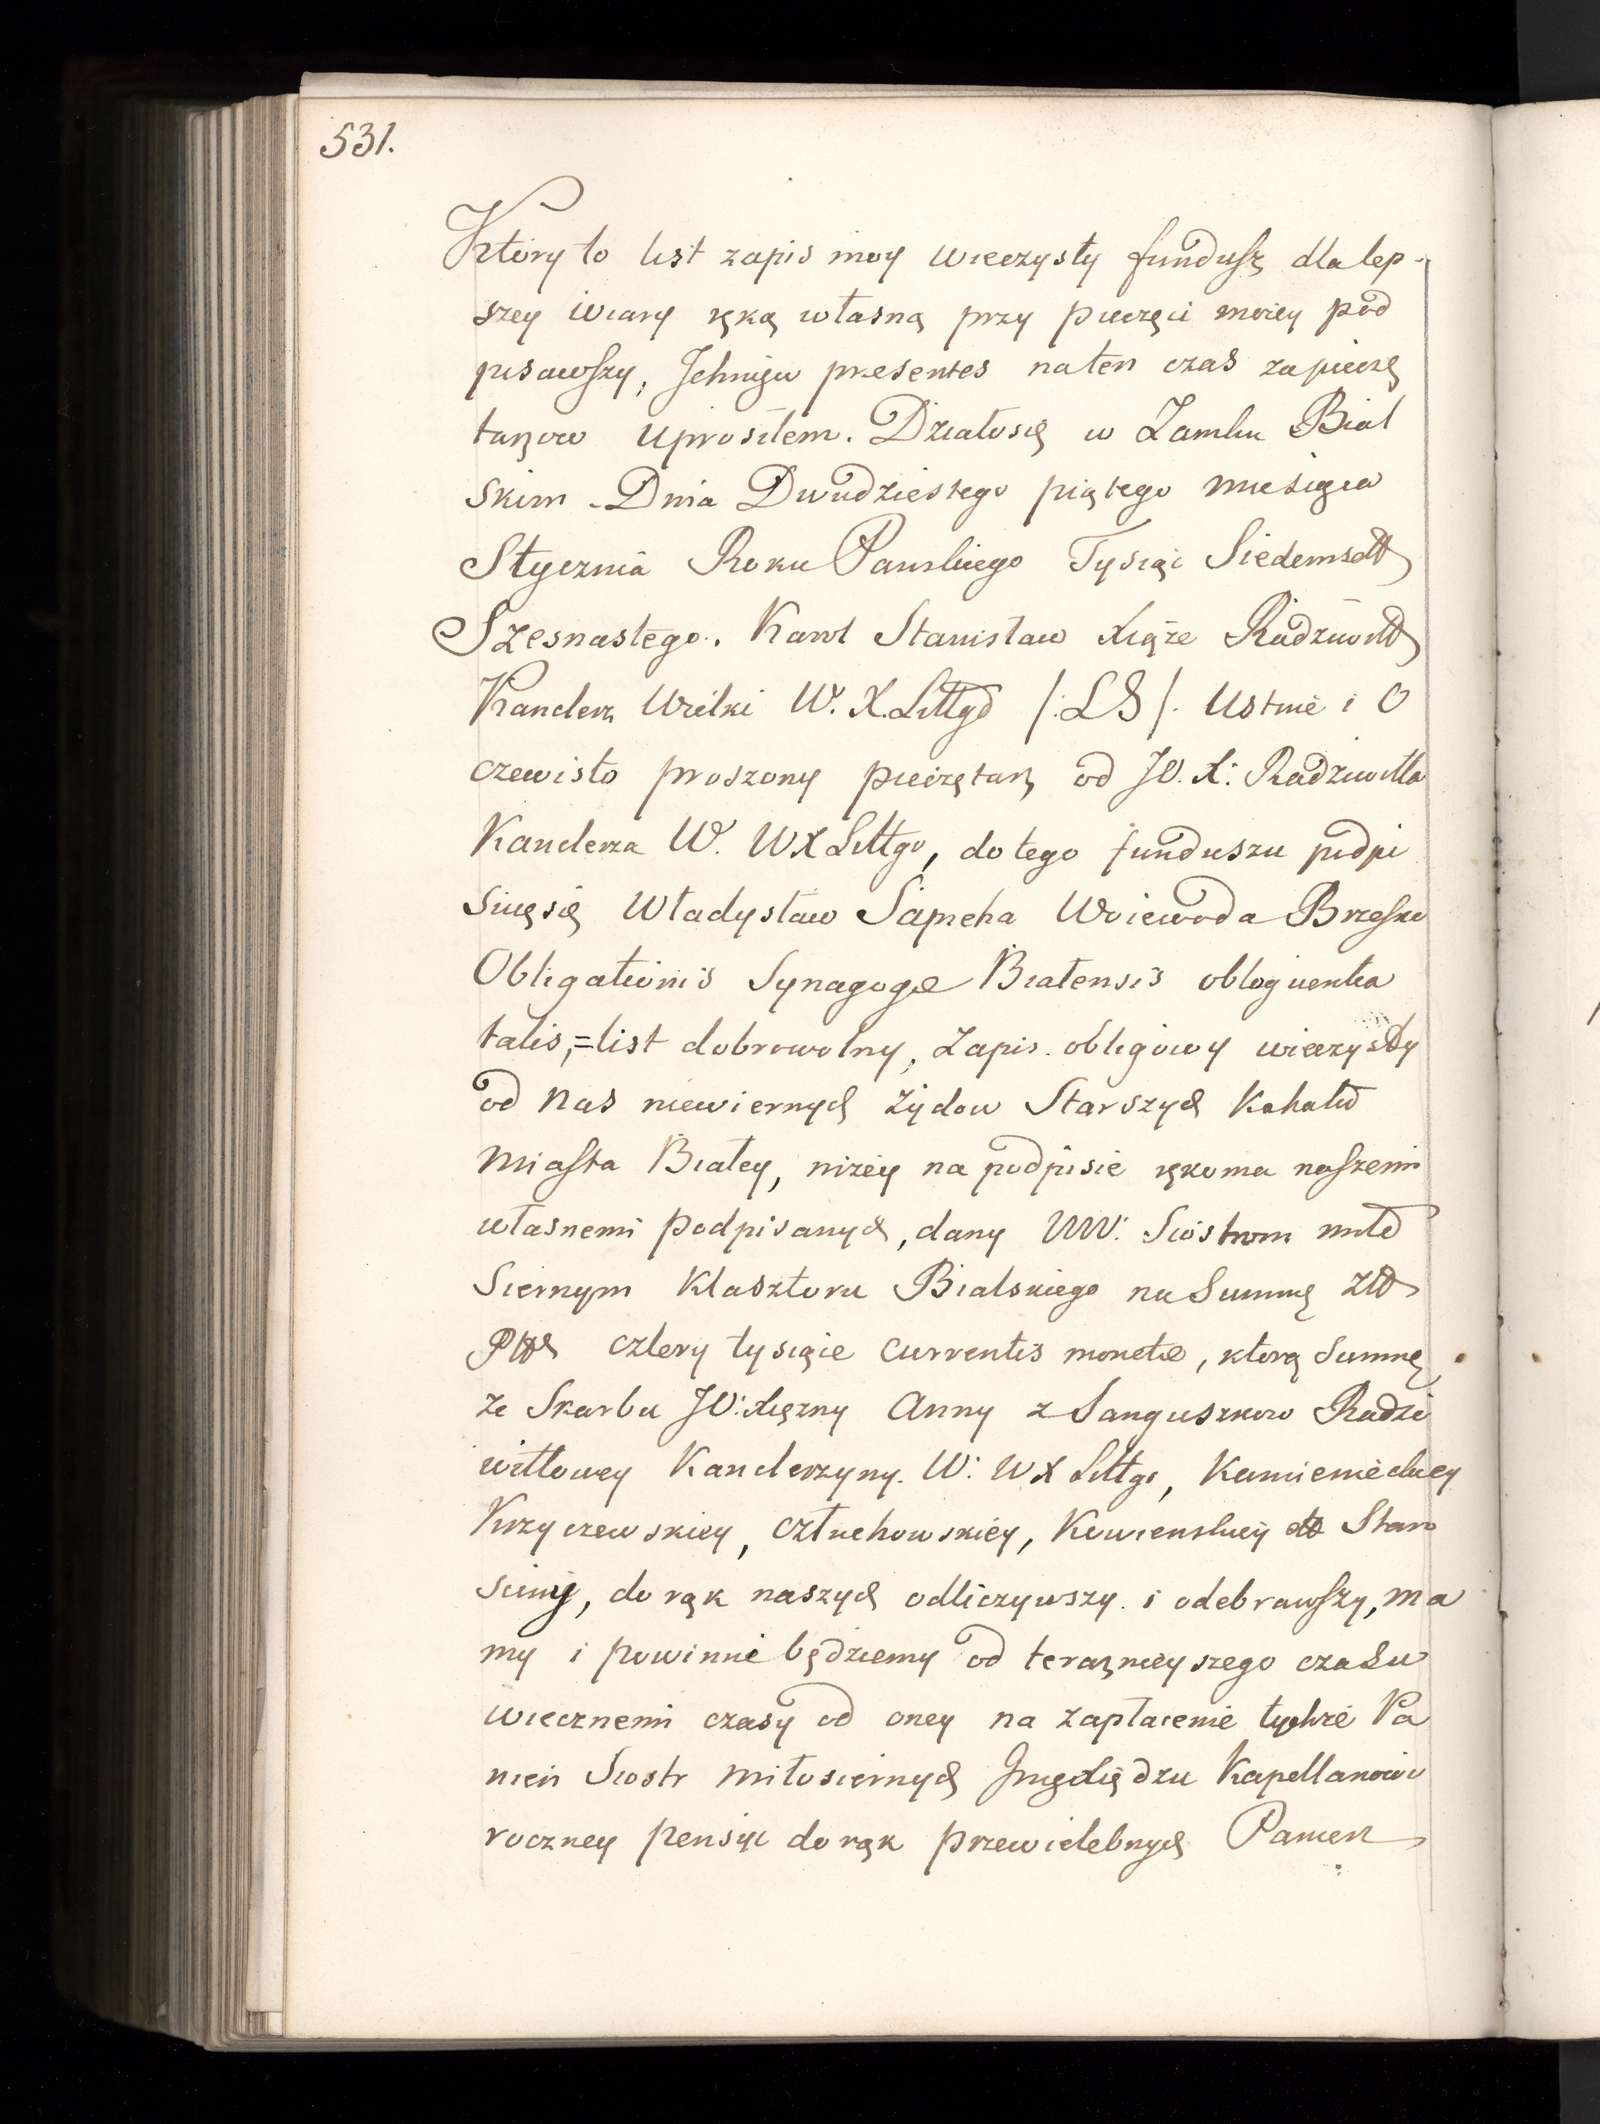 531.
Który to list zapis moy wieczysty fundusz dla lep-
szey wiary ręką własną przy pieczęci moiey pod
pisawszy, Ichmęw presentes naten czas zapieczę
tarzow uprosiłem. Działosię w Zamku Bial
skim. Dnia Dwudziestego piątego miesiąca
Stycznia Roku Panskiego Tysiąc Siedemset
Szesnastego. Karol Stanisław Xiąże Radziwiłł
Kanclerz Wielki W. X. Littgo /:LS/. Ustnie i O
czewisto proszony pieczętarz od JO. X: Radziwiłła
Kanclerza W. WXLittgo, do tego funduszu podpi
suięsię Władysław Sapieha Woiewoda Brzeski
Obligationis Synagogæ Białensis obloquentia
talis,=list dobrowolny, Zapis obligowy wieczysty
od nas niewiernych żydow Starszych Kahału
Miasta Białey, niżey na podpisie rękoma naszemi
własnemi podpisanych, dany WW: Siostrom miło
Siernym Klasztoru Bialskiego na Summę Złł
Plch cztery tysiące currentis monetæ, ktorą Summę
ze Skarbu JO: Xiężny Anny z Sanguszkow Radzi
wiłłowey Kanclerzyny W: WX Littgo, Kamienieckiey
Krzyczewskiey, Człuchowskiey, Kowienskiey et Staro
sciny, do rąk naszych odliczywszy i odebrawszy, ma
my i powinni będziemy od teraznieyszego czasu
wiecznemi czasy od oney na zapłacenie tychże Pa
nien Siostr miłosiernych Jmęxiędzu Kapellanowi
roczney pensyi do rąk przewielebnych Panien